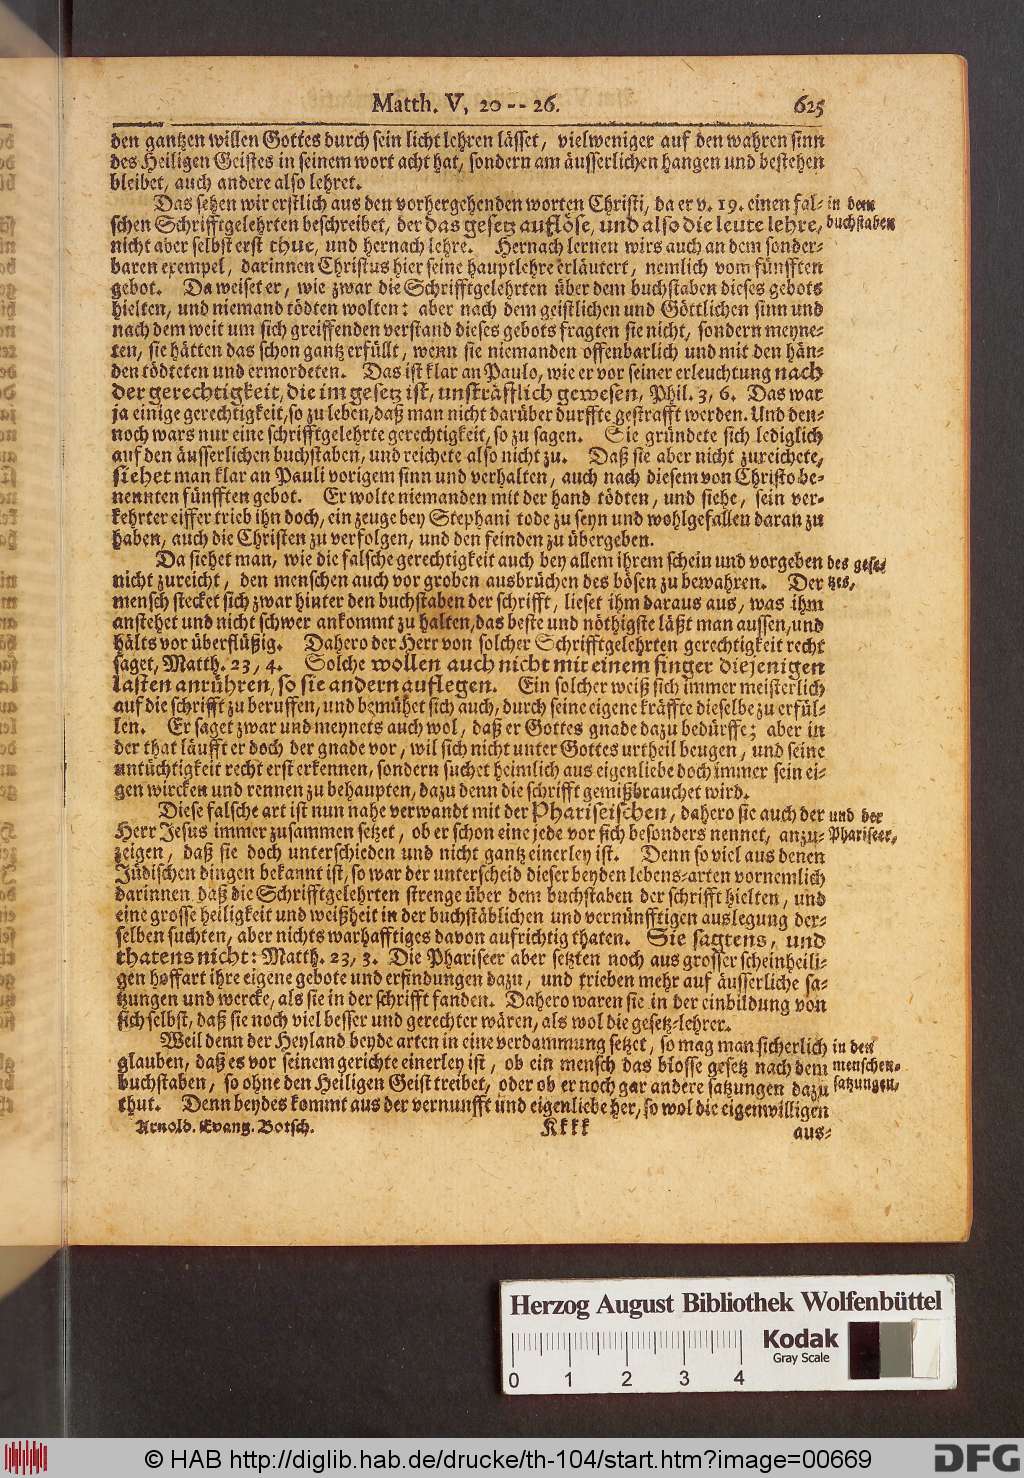 Matth. V, 20 -- 26. 625
den gantzen willen Gottes durch sein licht lehren lässet, vielweniger auf den wahren sinn
des Heiligen Geistes in seinem wort acht hat, sondern am äusserlichen hangen und bestehen
bleibet, auch andere also lehret.
Das sehen wir erstlich aus den vorhergehenden worten Christi, da er v. 19. einen fal-
in dem
schen Schrifftgelehrten beschreibet, der das gesetz auflöse, und also die leute lehre,
buchstaben
nicht aber selbst erst thue, und hernach lehre. Hernach lernen wirs auch an dem sonder-
baren exempel, darinnen Christus hier seine hauptlehre erläutert, nemlich vom fünfften
gebot. Da weiset er, wie zwar die Schrifftgelehrten über dem buchstaben dieses gebots
hielten, und niemand tödten wolten: aber nach dem geistlichen und Göttlichen sinn und
nach dem weit um sich greiffenden verstand dieses gebots fragten sie nicht, sondern meyne-
ten, sie hätten das schon gantz erfüllt, wenn sie niemanden offenbarlich und mit den hän-
den tödteten und ermordeten. Das ist klar an Paulo, wie er vor seiner erleuchtung nach
der gerechtigkeit, die im gesetz ist, unsträfflich gewesen, Phil. 3, 6. Das war
ja einige gerechtigkeit, so zu leben, daß man nicht darüber durffte gestrafft werden. Und den-
noch wars nur eine schrifftgelehrte gerechtigkeit, so zu sagen. Sie gründete sich lediglich
auf den äusserlichen buchstaben, und reichete also nicht zu. Daß sie aber nicht zureichete,
siehet man klar an Pauli vorigem sinn und verhalten, auch nach diesem von Christo be-
nennten fünfften gebot. Er wolte niemanden mit der hand tödten, und siehe, sein ver-
kehrter eiffer trieb ihn doch, ein zeuge bey Stephani tode zu seyn und wohlgefallen daran zu
haben, auch die Christen zu verfolgen, und den feinden zu übergeben.
Da siehet man, wie die falsche gerechtigkeit auch bey allem ihrem schein und vorgeben
des gese-
nicht zureicht, den menschen auch vor groben ausbrüchen des bösen zu bewahren. Der
tzes,
mensch stecket sich zwar hinter den buchstaben der schrifft, lieset ihm daraus aus, was ihm
anstehet und nicht schwer ankommt zu halten, das beste und nöthigste läßt man aussen, und
hälts vor überflüßig. Dahero der Herr von solcher Schrifftgelehrten gerechtigkeit recht
saget, Matth. 23, 4. Solche wollen auch nicht mit einem finger diejenigen
lasten anrühren, so sie andern auflegen. Ein solcher weiß sich immer meisterlich
auf die schrifft zu beruffen, und bemühet sich auch, durch seine eigene kräffte dieselbe zu erfül-
len. Er saget zwar und meynets auch wol, daß er Gottes gnade dazu bedürffe; aber in
der that läufft er doch der gnade vor, wil sich nicht unter Gottes urtheil beugen, und seine
untüchtigkeit recht erst erkennen, sondern suchet heimlich aus eigenliebe doch immer sein ei-
gen wircken und rennen zu behaupten, dazu denn die schrifft gemißbrauchet wird.
Diese falsche art ist nun nahe verwandt mit der Phariseischen, dahero sie auch der
und der
Herr Jesus immer zusammen setzet, ob er schon eine jede vor sich besonders nennet, anzu-
Phariseer,
zeigen, daß sie doch unterschieden und nicht gantz einerley ist. Denn so viel aus denen
Jüdischen dingen bekannt ist, so war der unterscheid dieser beyden lebens-arten vornemlich
darinnen, daß die Schrifftgelehrten strenge über dem buchstaben der schrifft hielten, und
eine grosse heiligkeit und weißheit in der buchstäblichen und vernünfftigen auslegung der-
selben suchten, aber nichts warhafftiges davon aufrichtig thaten. Sie sagtens, und
thatens nicht: Matth. 23, 3. Die Phariseer aber setzten noch aus grosser scheinheili-
gen hoffart ihre eigene gebote und erfindungen dazu, und trieben mehr auf äusserliche sa-
tzungen und wercke, als sie in der schrifft fanden. Dahero waren sie in der einbildung von
sich selbst, daß sie noch viel besser und gerechter wären, als wol die gesetz-lehrer.
Weil denn der Heyland beyde arten in eine verdammung setzet, so mag man sicherlich
in den
glauben, daß es vor seinem gerichte einerley ist, ob ein mensch das blosse gesetz nach dem
menschen-
buchstaben, so ohne den Heiligen Geist treibet, oder ob er noch gar andere satzungen dazu
satzungen,
thut. Denn beydes kommt aus der vernunfft und eigenliebe her, so wol die eigenwilligen
Arnold. Evang. Botsch. Kkkk aus-
Herzog August Bibliothek Wolfenbüttel
Kodak
Gray Scale
0 1 2 3 4
© HAB http://diglib.hab.de/drucke/th-104/start.htm?image=00669
DFG